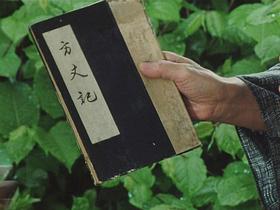 方丈記